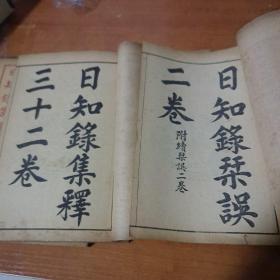 日知錄栞誤
二卷
附續栞誤二卷
日知錄集釋
三十二卷